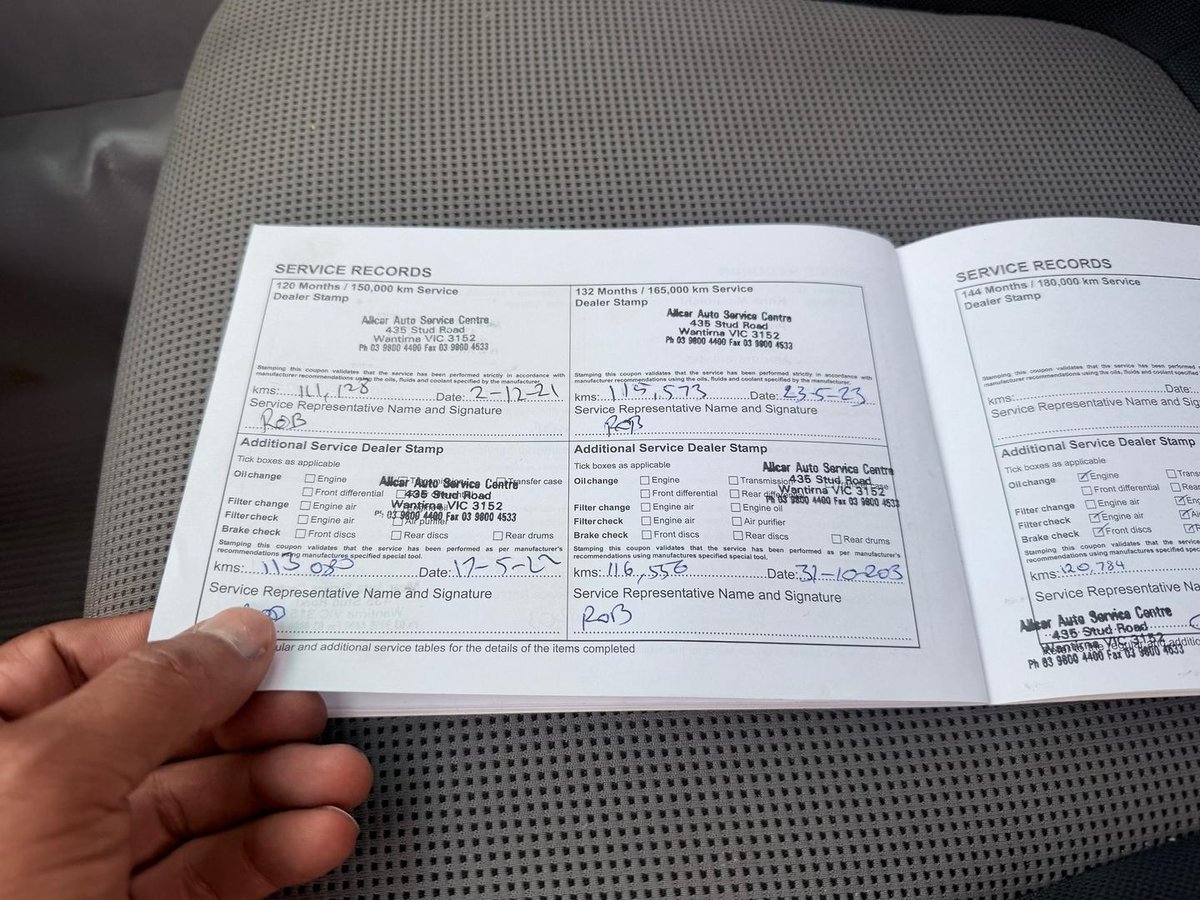 SERVICE RECORDS
120 Months / 150,000 km Service
Dealer Stamp
Allcar Auto Service Centre
435 Stud Road
Wantirna VIC 3152
Ph 03 9800 4400 Fax 03 9800 4533
Stamping this coupon validates that the service has been performed strictly in accordance with
manufacturer recommendations using the oils, fluids and coolant specified by the manufacturer.
kms: 111,128 Date: 2-12-21
Service Representative Name and Signature
ROB
Additional Service Dealer Stamp
Tick boxes as applicable
Oil change Engine Transmission Transfer case
Front differential
Filter change Engine air
Filter check Engine air Air purifier
Brake check Front discs Rear discs Rear drums
Allcar Auto Service Centre
435 Stud Road
Wantirna VIC 3152
Ph 03 9800 4400 Fax 03 9800 4533
Stamping this coupon validates that the service been performed as per manufacturer's
recommendations using manufactures specified special tool.
kms: 113 080 Date: 17-5-22
Service Representative Name and Signature
132 Months / 165,000 km Service
Dealer Stamp
Allcar Auto Service Centre
435 Stud Road
Wantirna VIC 3152
Ph 03 9800 4400 Fax 03 9800 4533
Stamping this coupon validates that the service has been performed strictly in accordance with
manufacturer recommendations using the oils, fluids and coolant specified by the manufacturer.
kms: 115,573 Date: 23-5-23
Service Representative Name and Signature
ROB
Additional Service Dealer Stamp
Tick boxes as applicable
Oil change Engine Transmission
Front differential Rear
Filter change Engine air Engine oil
Filter check Engine air Air purifier
Brake check Front discs Rear discs Rear drums
Allcar Auto Service Centre
435 Stud Road
Wantirna VIC 3152
Ph 03 9800 4400 Fax 03 9800 4533
Stamping this coupon validates that the service been performed as per manufacturer's
recommendations using manufactures specified special tool.
kms: 116,556 Date: 31-10-203
Service Representative Name and Signature
ROB
and additional service tables for the details of the items completed
SERVICE RECORDS
144 Months / 180,000 km Service
Dealer Stamp
Stamping this coupon validates that the service has been performed
manufacturer recommendations using the oils, fluids and coolant specified
kms: Date:
Service Representative Name and Signature
Additional Service Dealer Stamp
Tick boxes as applicable
Oil change Engine
Front differential Rear
Filter change Engine air
Filter check Engine air
Brake check Front discs
Stamping this coupon validates that the service been performed
recommendations using manufactures specified
kms: 120,784
Service Representative
Allcar Auto Service Centre
435 Stud Road
Wantirna VIC 3152
Ph 03 9800 4400 Fax 03 9800 4533